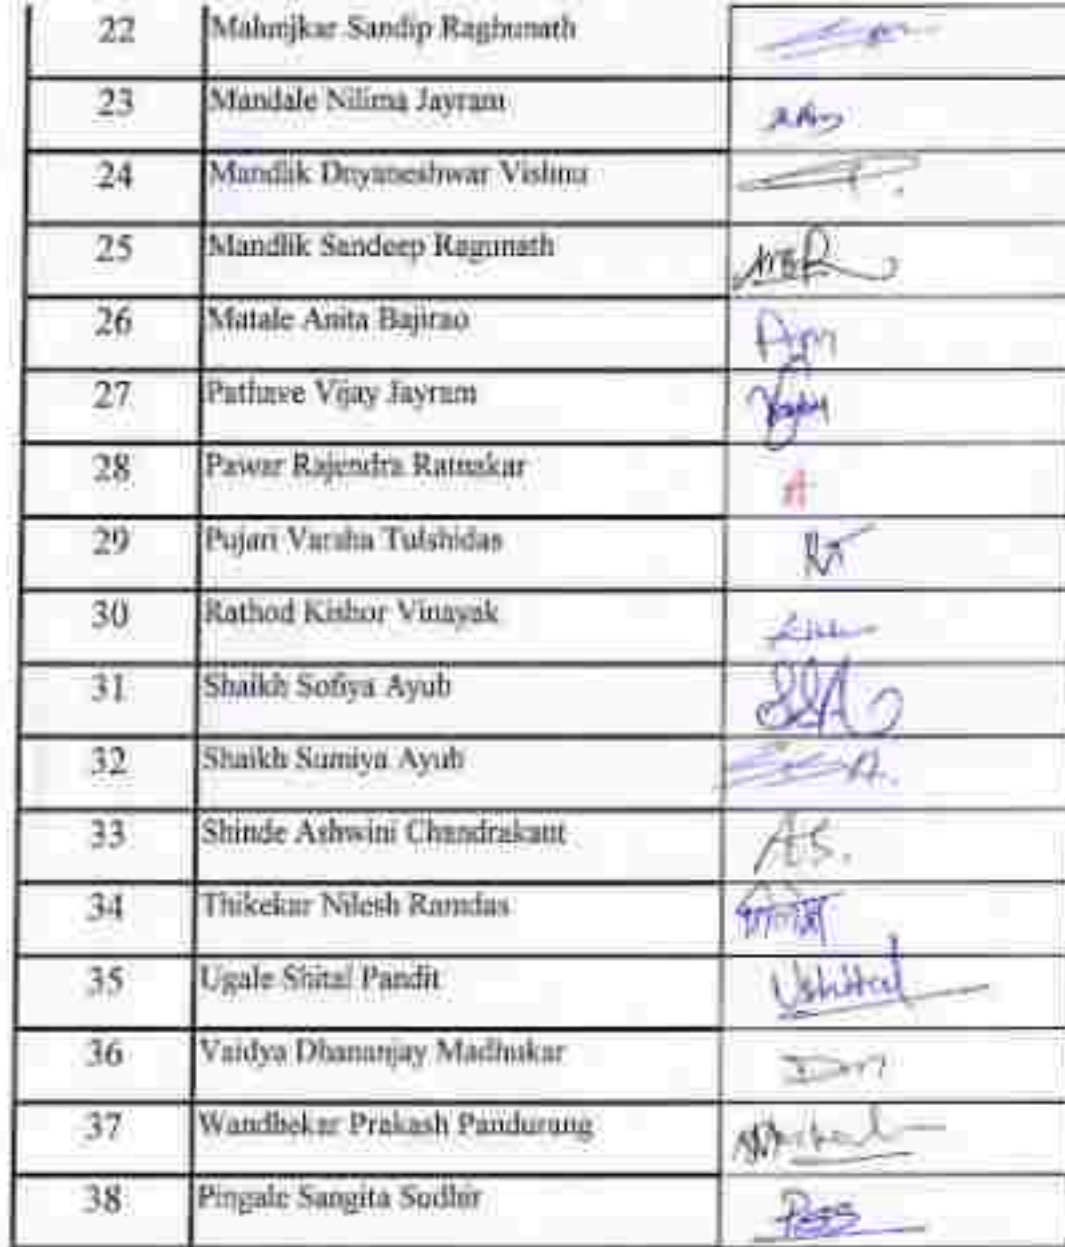 22 Malunjkar Sandip Raghunath
23 Mandale Nilima Jayram
24 Mandlik Dnyaneshwar Vishnu
25 Mandlik Sandeep Ragunath
26 Matale Anita Bajirao
27 Pathave Vijay Jayram
28 Pawar Rajendra Ratnakar A
29 Pujari Varsha Tulshidas
30 Rathod Kishor Vinayak
31 Shaikh Sofiya Ayub SSA
32 Shaikh Sumiya Ayub
33 Shinde Ashwini Chandrakant A.S.
34 Thikekar Nilesh Ramdas
35 Ugale Shital Pandit Ushital
36 Vaidya Dhananjay Madhukar
37 Wandhekar Prakash Pandurang
38 Pingale Sangita Sudhir